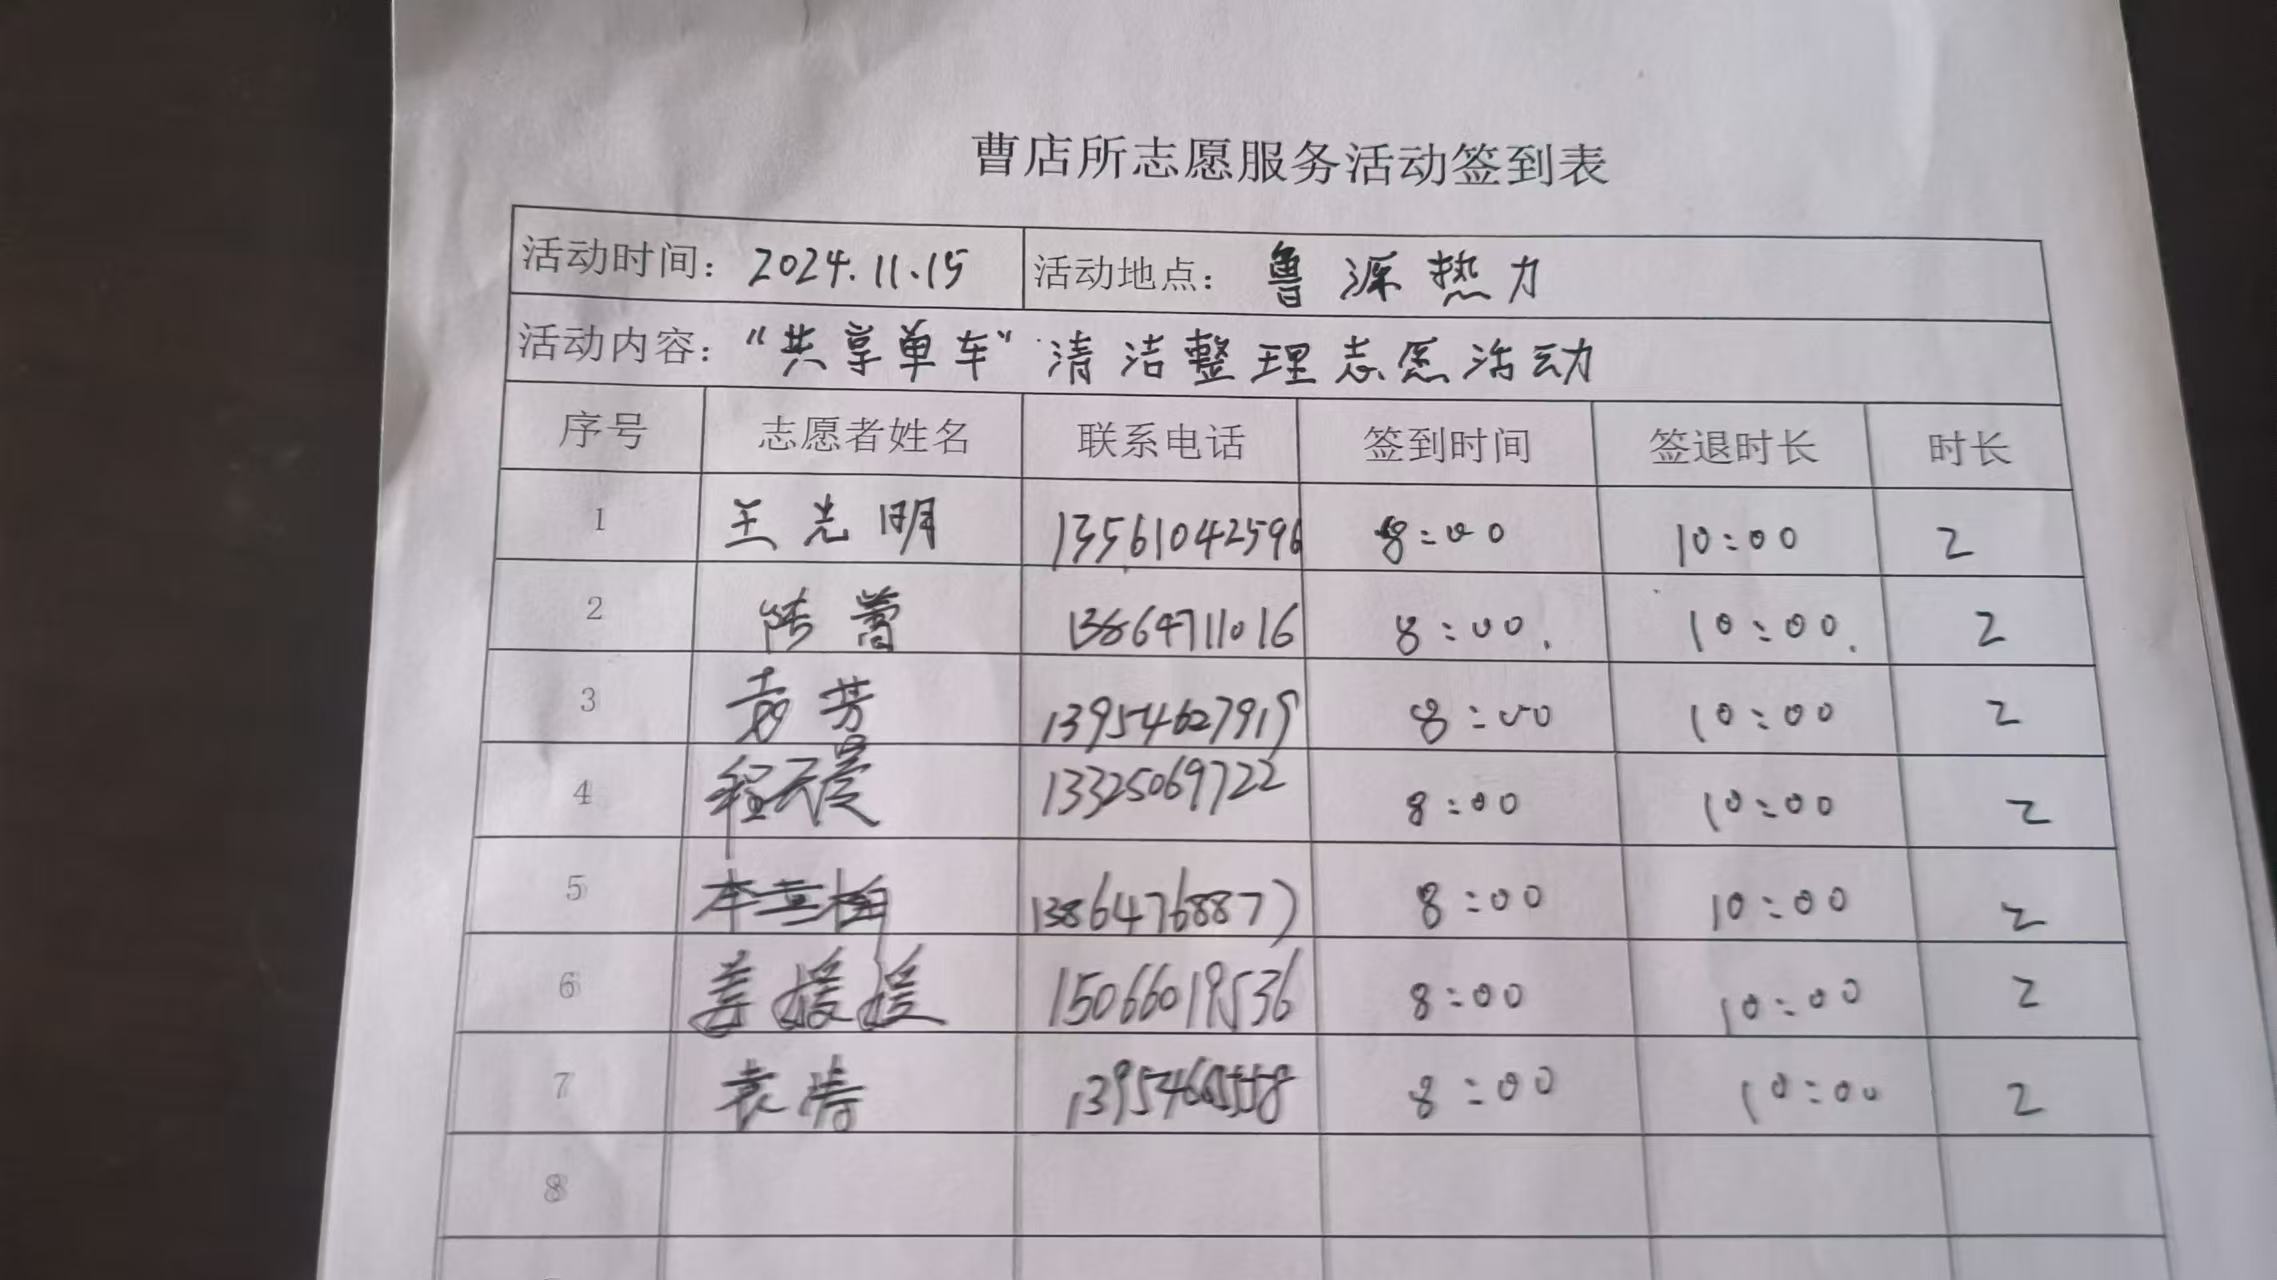 曹店所志愿服务活动签到表
活动时间：2024.11.15 活动地点：鲁源热力
活动内容：“共享单车”清洁整理志愿活动
序号 志愿者姓名 联系电话 签到时间 签退时长 时长
1 王光明 13561042596 8:00 10:00 2
2 陆蕾 13864711016 8:00. 10:00. 2
3 袁芳 13954627919 8:00 10:00 2
4 程天昊 13325069722 8:00 10:00 2
5 13864768877 8:00 10:00 2
6 姜媛媛 15066019536 8:00 10:00 2
7 袁涛 8:00 10:00 2
8